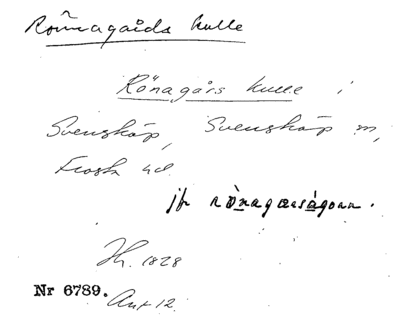 Rönnagårds kulle
Rönagårs kulle i
Svensköp, Svensköp sn,
Frosta hd.
jfr rònagarságorna.
Th. 1828
Nr 6789. Ant 12.